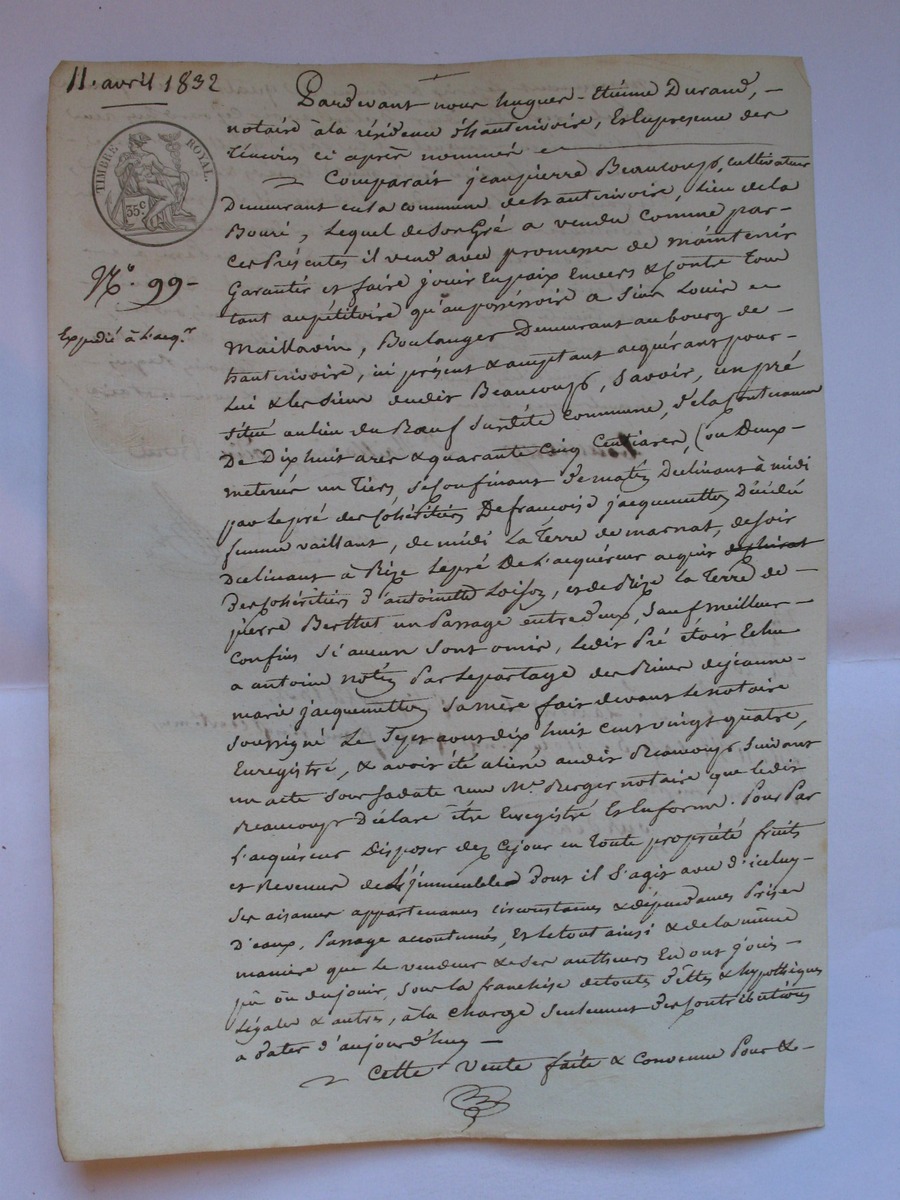 11. avril 1832
TIMBRE ROYAL.
35 c
N.º 99 -
Expédié à l'acq.r
Pardevant nous hugues - Etienne Durand, -
notaire à la résidence d'hauterivoire, Et en presence des
témoins ci après nommés
Comparait jean pierre Beaucoup, cultivateur
Demeurant en la commune de hauterivoire, lieu de la
Bouré, Lequel de son Gré a vendu comme par -
ces Présentes il vend avec promesse de maintenir
Garantir et faire jouir En paix Envers & Contre Tous
tant au pétitoire qu'au possessoire a Sieur Louis
Maillavin, Boulanger Demeurant au bourg de -
hauterivoire, ici présent & acceptant acquérant pour -
Lui & les siens dudit Beaucoup, Savoir, un pré
Situé au lieu du Bœuf Surdite Commune, de la Contenance
De Dix huit ares & quarante cinq Centiares, (ou Deux -
meterés un Tiers, se confinant de matin Déclinant à midi
par le pré des Cohéritiers De françoise jacquemetton Décédée
femme vaillant, de midi La Terre de marnat, de soir
Déclinant à Bize Le pré De L'acquéreur acquis
des Cohéritiers d'antoinette Loison, et de Bize la Terre de -
pierre Berthet un Passage entre deux, Sauf meilleurs -
Confins Si aucun sont omis, Ledit Pré étoit Echu
a antoine notés Par Le partage des Biens de jeanne -
marie jacquemetton Sa mère fait devant Le notaire
Soussigné Le Sept aout dix huit cent vingt quatre,
Enregistré, & avoit été aliéné audit Beaucoup Suivant
un acte Sous Sa date reçu Me. Berger notaire que ledit
Beaucoup Déclare être Enregistré Et En forme. Pour Par
L'acquéreur Disposer dez Cejour en Toute propriété fruits
et Revenus de L'immeuble Dont il S'agit avec d'iceluy -
Ses aisances appartenances circonstances & dépendances Prises
D'eaux, Passage accoutumés, Et le tout ainsi & de la même
manière que Le vendeur & Ses autheurs En ont jouis -
pû ou du jouir, Sous La franchise de toutes dettes & hypothèques
Légales & autres, à La Charge Seulement des Contributions
a dater d'aujourd'huy -
Cette vente faite & Convenue Pour & -